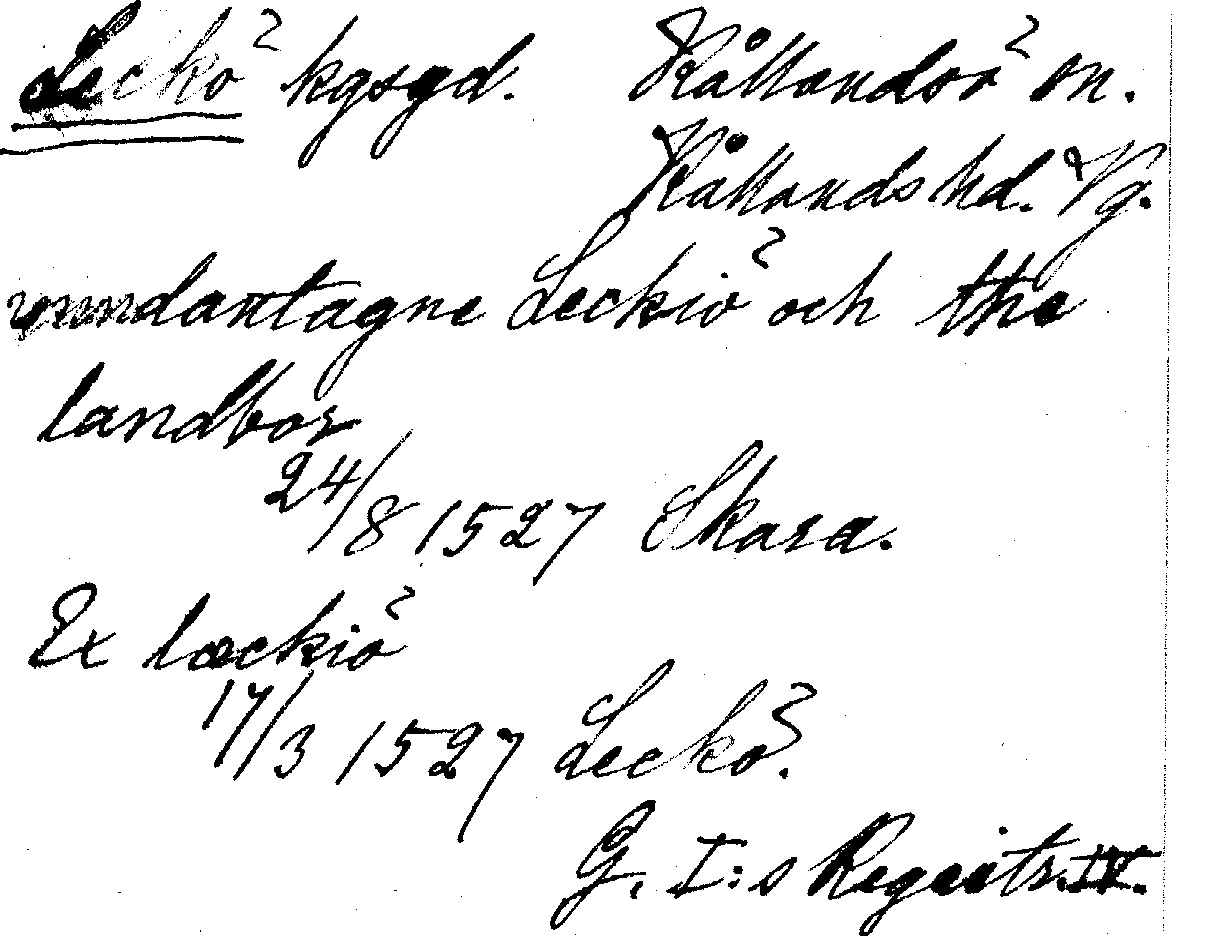 Leckö kgsgd. Kållandsö sn.
Kållands hd. Vg.
wnndantagne Leckiö och the
landbor
24/8 1527 Skara.
Ex læckiö
17/3 1527 Leckö.
G. I:s Registr. IV.